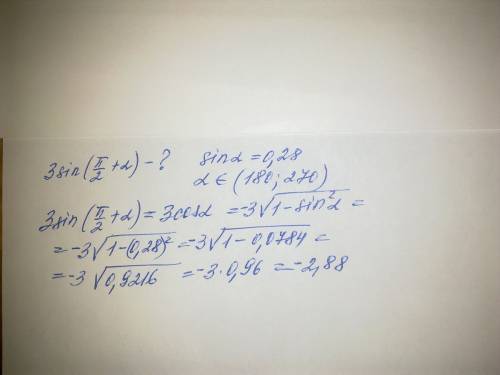 3sin(π/2 + α) - ? sinα = 0,28
α ∈ (180; 270)
3sin(π/2 + α) = 3cosα = -3√(1 - sin²α) =
= -3√(1 - (0,28)²) = -3√(1 - 0,0784) =
= -3√(0,9216) = -3 · 0,96 = -2,88